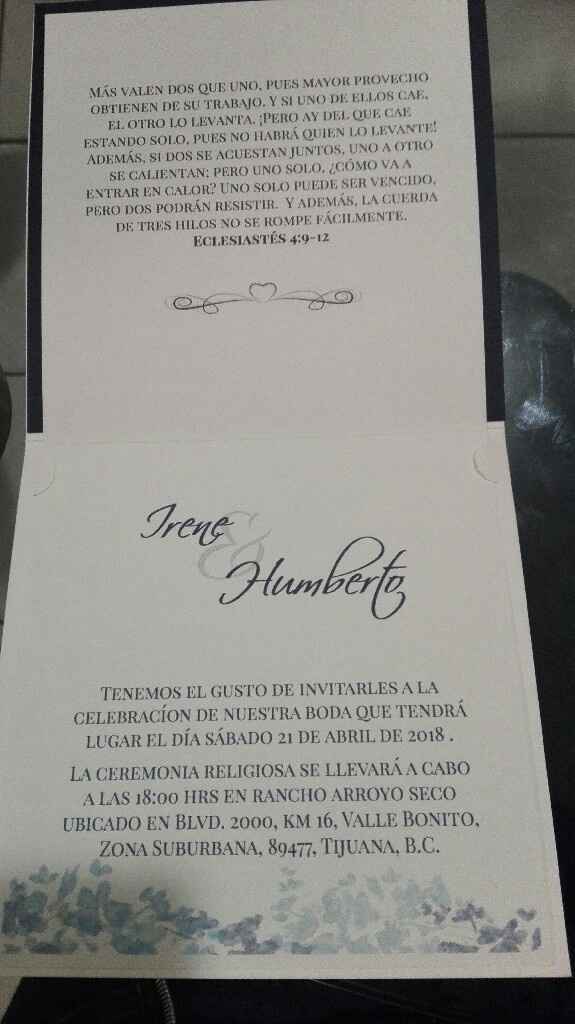 MÁS VALEN DOS QUE UNO, PUES MAYOR PROVECHO
OBTIENEN DE SU TRABAJO. Y SI UNO DE ELLOS CAE,
EL OTRO LO LEVANTA. ¡PERO AY DEL QUE CAE
ESTANDO SOLO, PUES NO HABRÁ QUIEN LO LEVANTE!
ADEMÁS, SI DOS SE ACUESTAN JUNTOS, UNO A OTRO
SE CALIENTAN; PERO UNO SOLO, ¿CÓMO VA A
ENTRAR EN CALOR? UNO SOLO PUEDE SER VENCIDO,
PERO DOS PODRÁN RESISTIR. Y ADEMÁS, LA CUERDA
DE TRES HILOS NO SE ROMPE FÁCILMENTE.
ECLESIASTÉS 4:9-12
Irene
&
Humberto
TENEMOS EL GUSTO DE INVITARLES A LA
CELEBRACÍON DE NUESTRA BODA QUE TENDRÁ
LUGAR EL DÍA SÁBADO 21 DE ABRIL DE 2018 .
LA CEREMONIA RELIGIOSA SE LLEVARÁ A CABO
A LAS 18:00 HRS EN RANCHO ARROYO SECO
UBICADO EN BLVD. 2000, KM 16, VALLE BONITO,
ZONA SUBURBANA, 89477, TIJUANA, B.C.